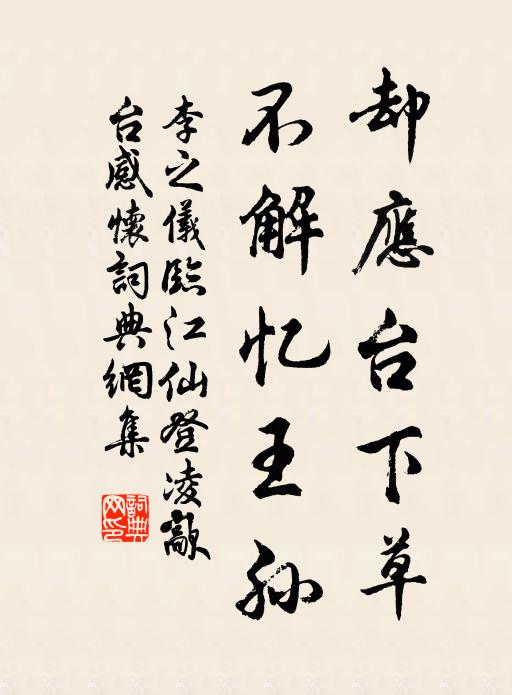 却應台下草
不解忆王孙
李之儀臨江仙登凌歊
台感懷詞典網集
詞典
网印